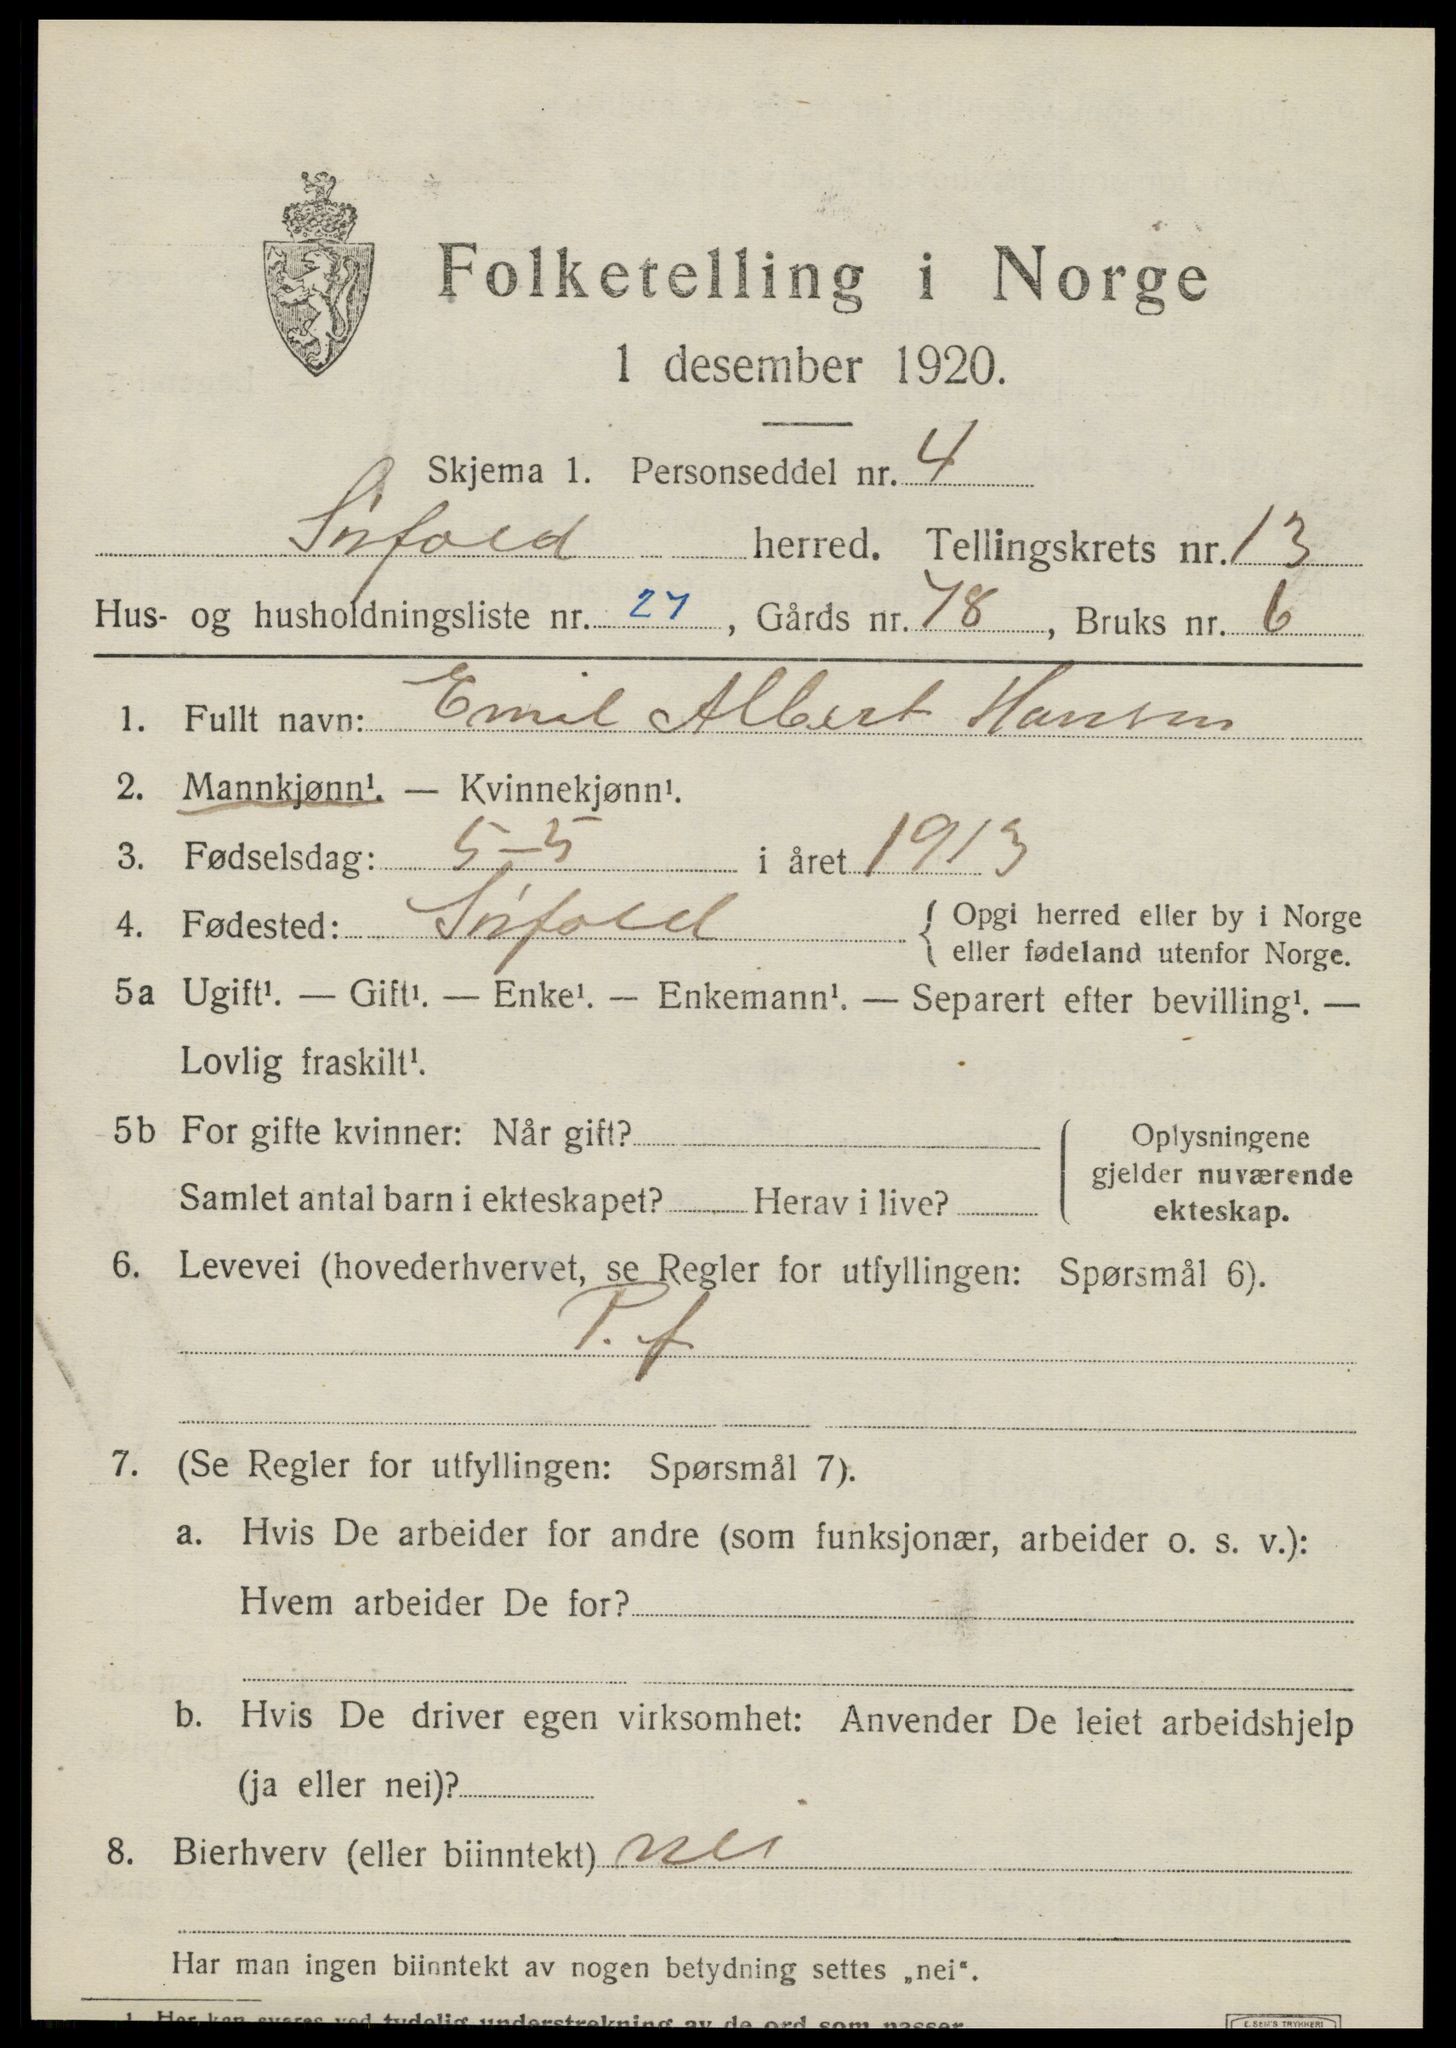 Folketelling i Norge
1 desember 1920.
Skjema 1. Personseddel nr. 4
Sørfold herred. Tellingskrets nr. 13
Hus- og husholdningsliste nr. 27, Gårds nr. 78, Bruks nr. 6
1. Fullt navn: Emil Albert Hansen
2. Mannkjønn¹. — Kvinnekjønn¹.
3. Fødselsdag: 5-5 i året 1913
4. Fødested: Sørfold { Opgi herred eller by i Norge
eller fødeland utenfor Norge.
5a Ugift¹. — Gift¹. — Enke¹. — Enkemann¹. — Separert efter bevilling¹. —
Lovlig fraskilt¹.
5b For gifte kvinner: Når gift?
Samlet antal barn i ekteskapet? Herav i live?
Oplysningene
gjelder nuværende
ekteskap.
6. Levevei (hovederhvervet, se Regler for utfyllingen: Spørsmål 6).
P. f
7. (Se Regler for utfyllingen: Spørsmål 7).
a. Hvis De arbeider for andre (som funksjonær, arbeider o. s. v.):
Hvem arbeider De for?
b. Hvis De driver egen virksomhet: Anvender De leiet arbeidshjelp
(ja eller nei)?
8. Bierhverv (eller biinntekt) nei
Har man ingen biinntekt av nogen betydning settes „nei“.
1. Her kan svares ved tydelig understrekning av de ord som passer.